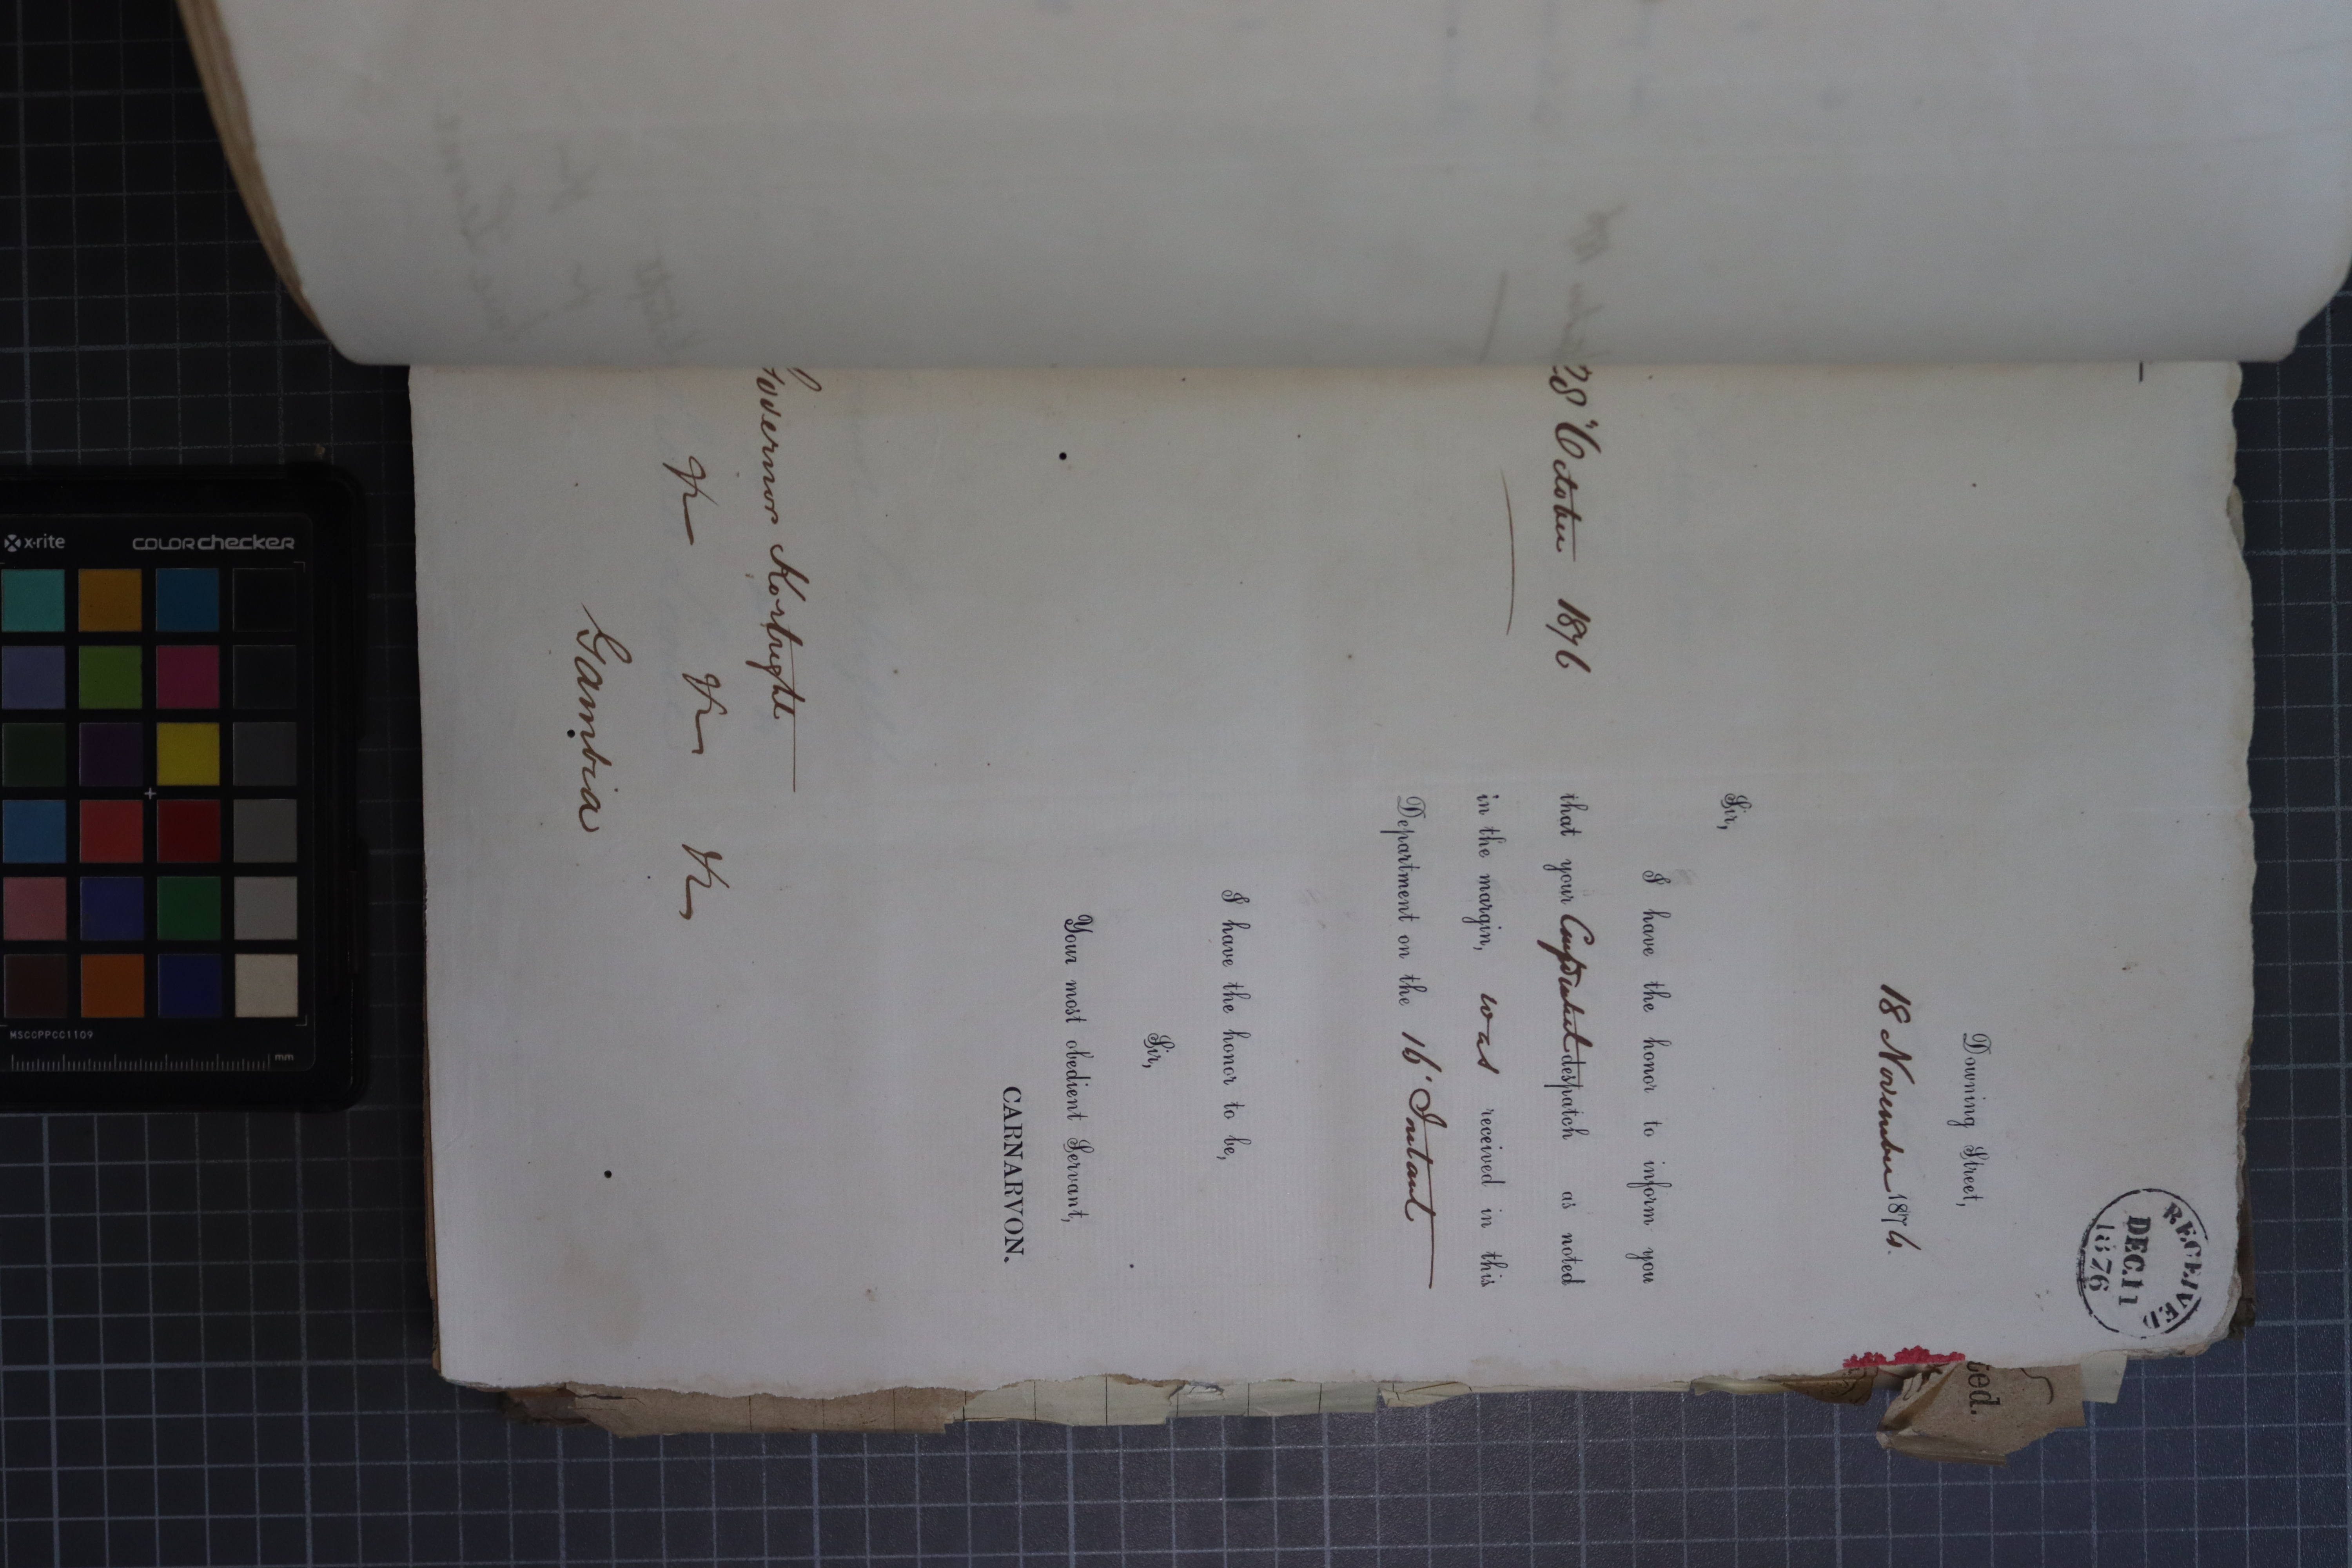 RECEIVED
DEC.11
1876
Downing Street,
18 November 1876.
Sir,
I have the honor to inform you
28 October 1876
that your despatch as noted
in the margin, was received in this
Department on the 16' Instant
I have the honor to be,
Sir,
Your most obedient Servant,
CARNARVON.
Governor Kortright
Gambia
ted.
x·rite
colorchecker
MSCCPPCC1109
mm